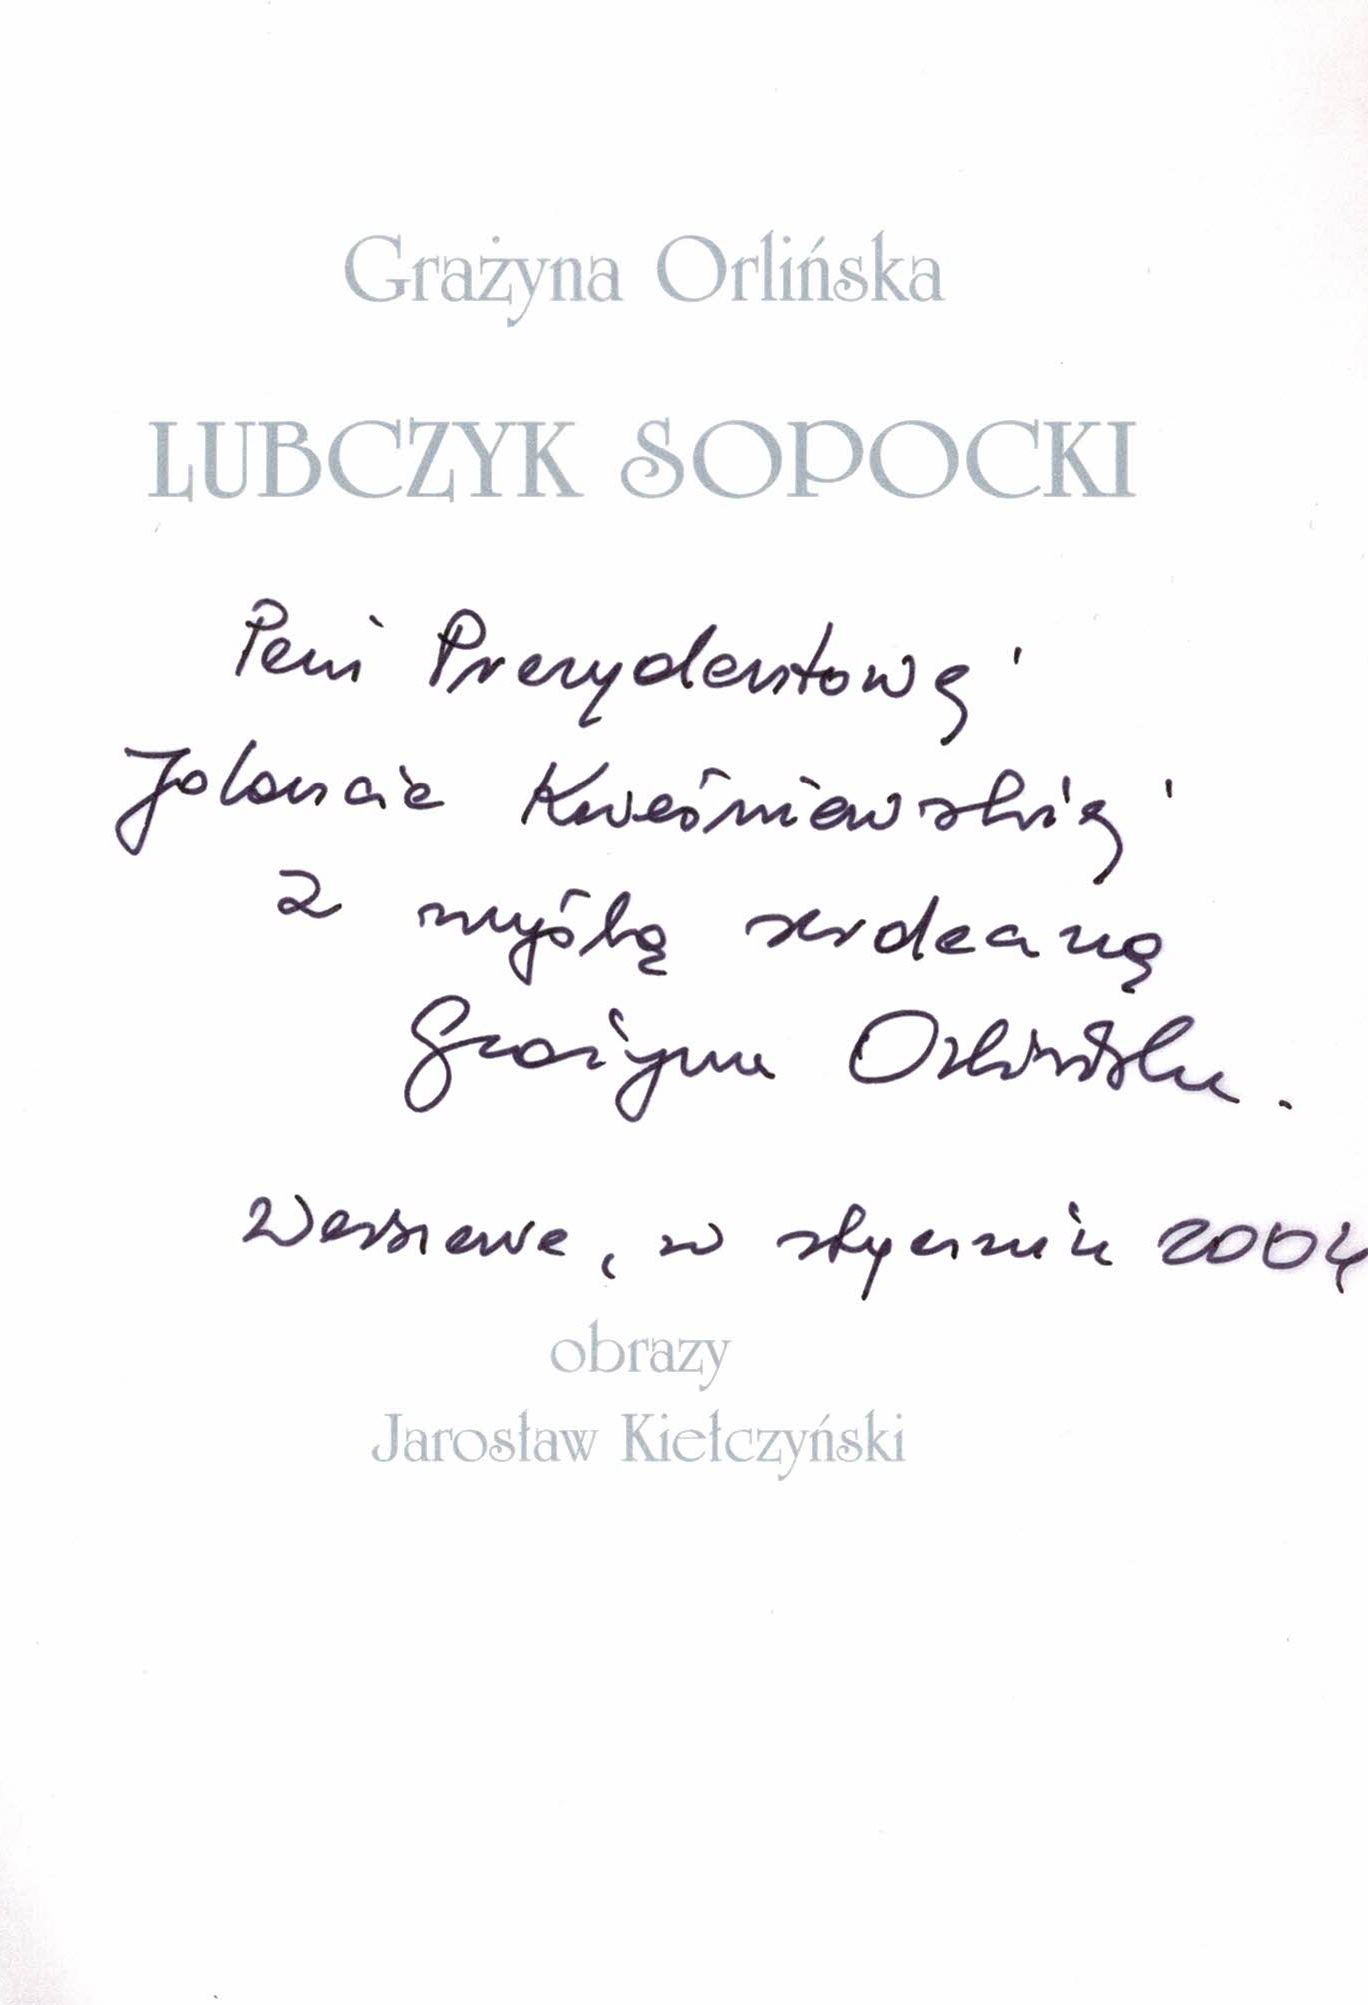 Grażyna Orlińska
LUBCZYK SOPOCKI
Pani Prezydentowej
Jolancie Kwaśniewskiej
z myślą serdeczną
Grażyna Orlińska.
Warszawa, w styczniu 2004
obrazy
Jarosław Kiełczyński